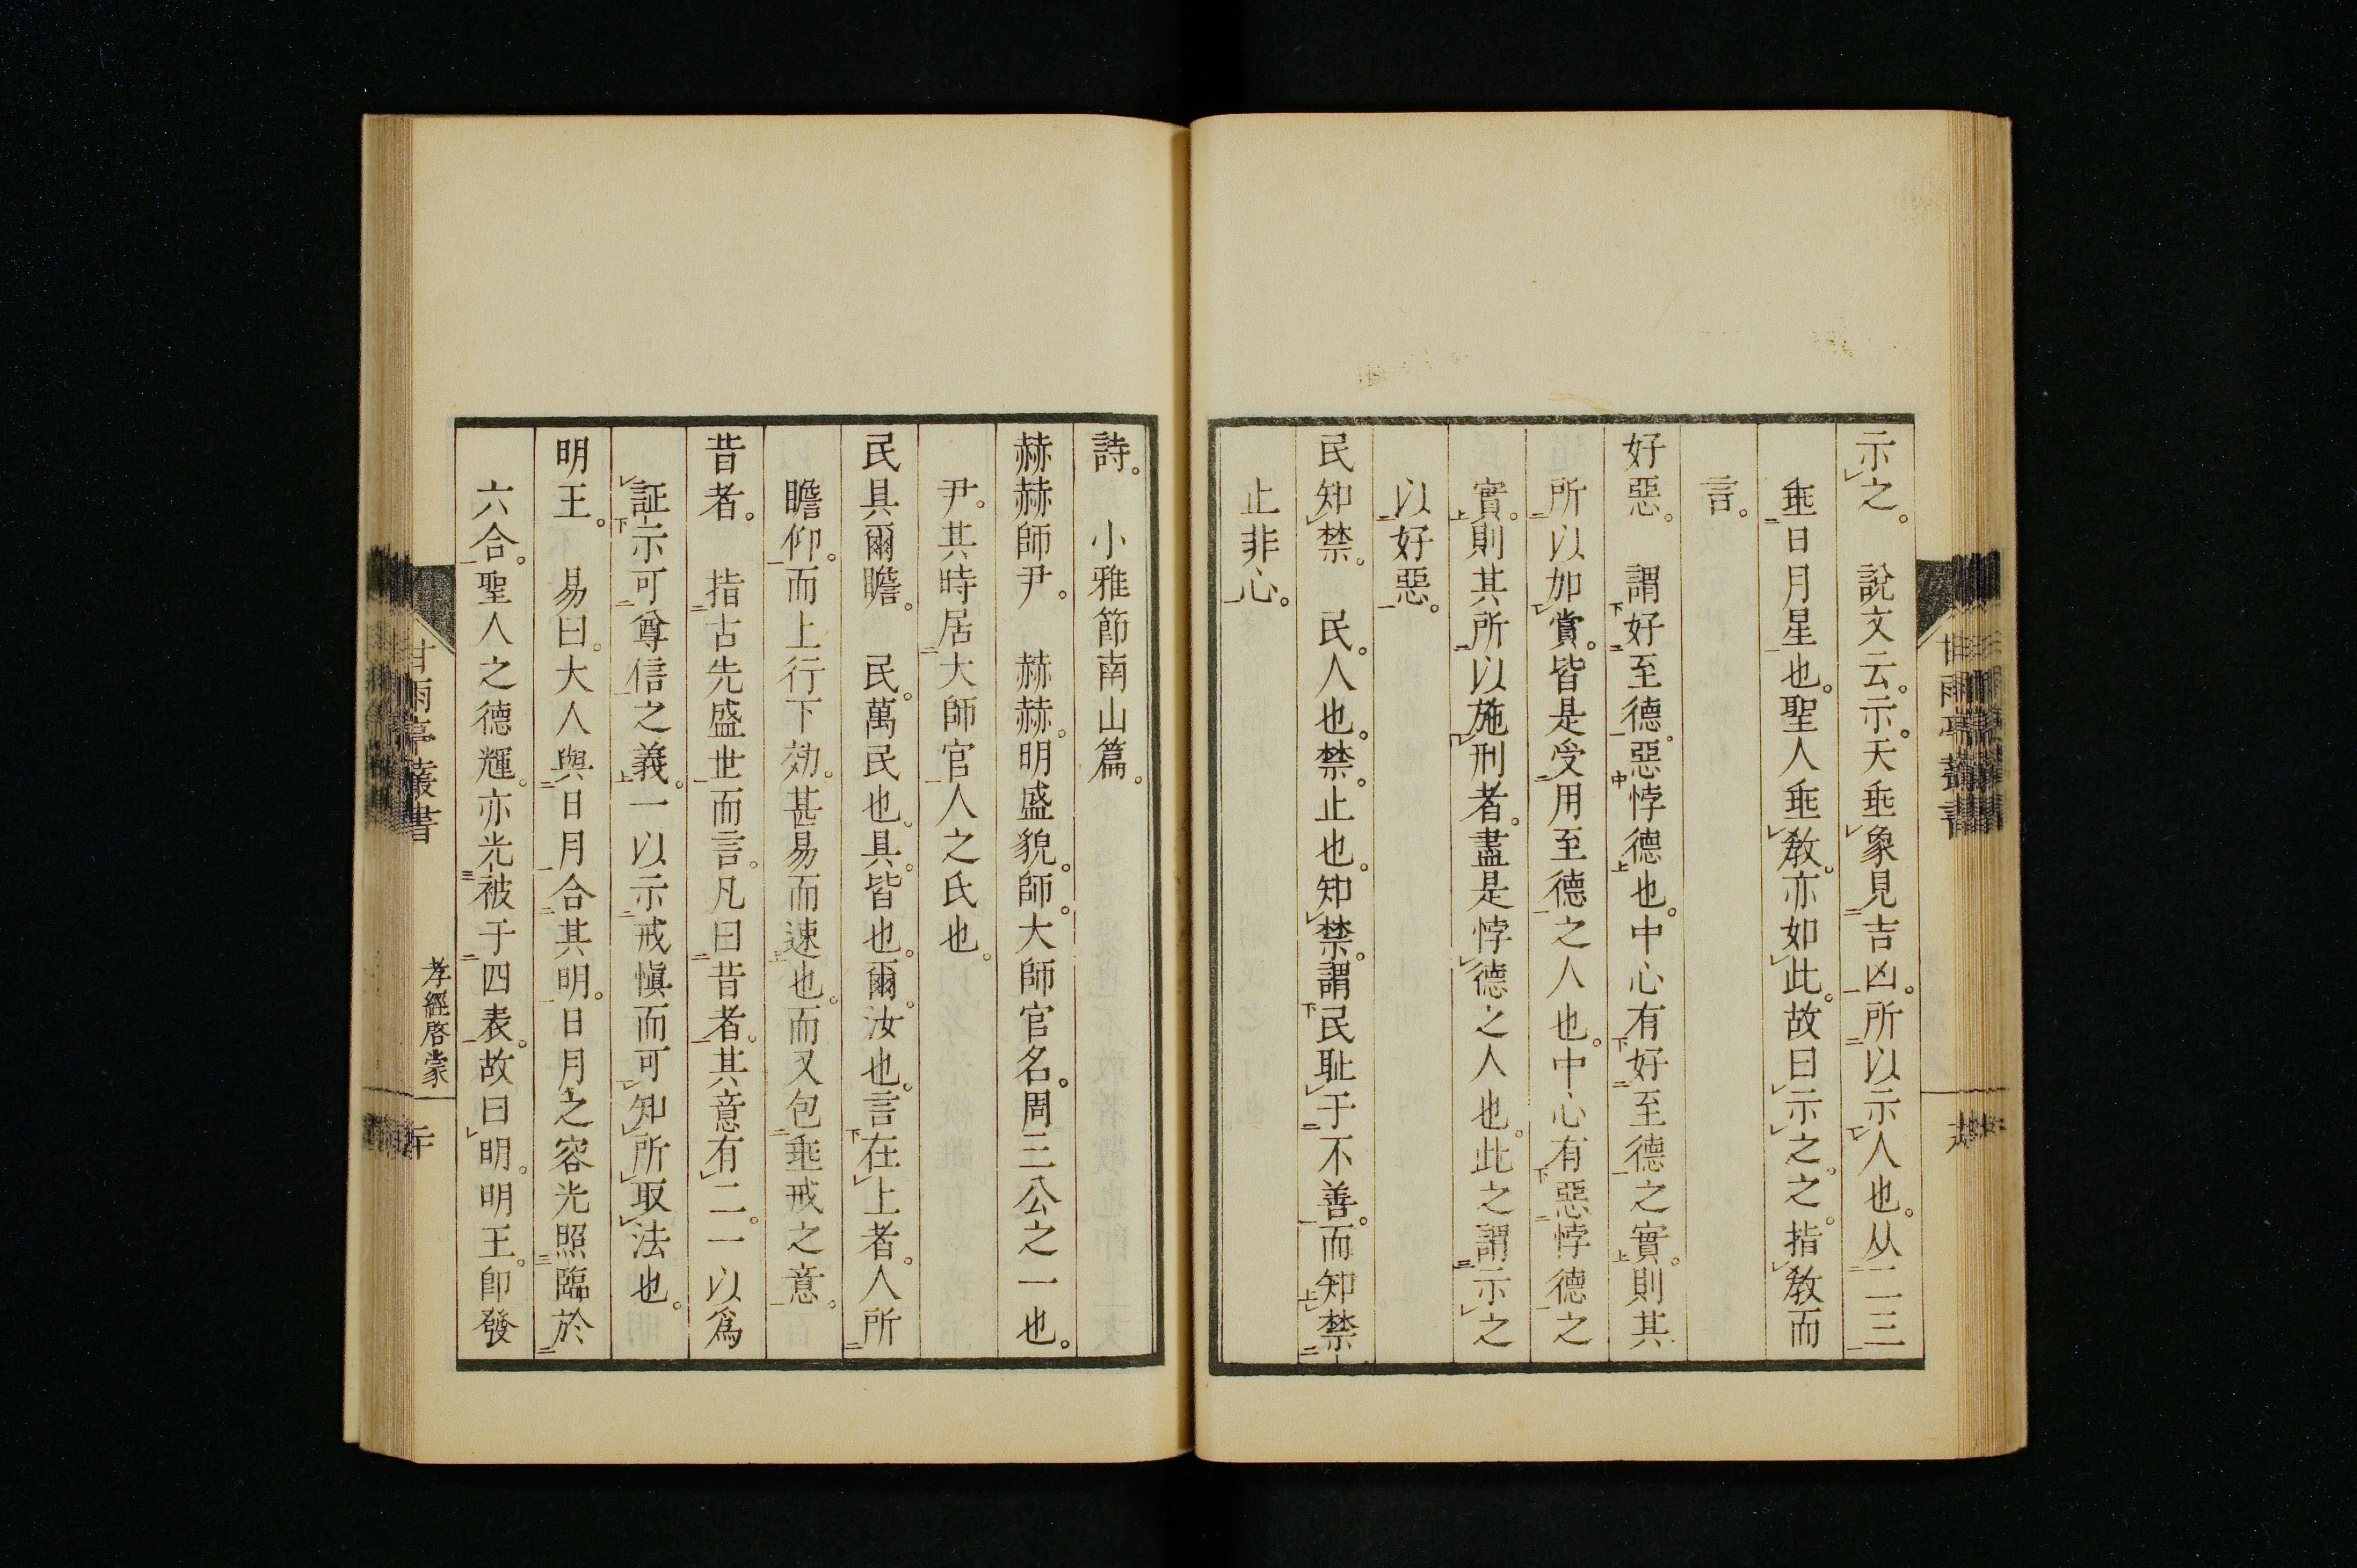 示之。　說文云。示。天垂象見吉凶。所以示人也。从二三
垂日月星也。聖人垂教。亦如此。故曰示之。之。指教而
言。
好惡。　謂好至德。惡悖德也。中心有好至德之實。則其
所以如賞。皆是受用至德之人也。中心有惡悖德之
實。則其所以施刑者。盡是悖德之人也。此之謂示之
以好惡。
民知禁。　民。人也。禁。止也。知禁。謂民耻于不善。而知禁
止非心。
甘雨亭叢書
詩。　小雅節南山篇。
赫赫師尹。　赫赫。明盛貌。師。大師官名。周三公之一也。
尹。其時居大師官人之氏也。
民具爾瞻。　民。萬民也。具。皆也。爾。汝也。言在上者。人所
瞻仰。而上行下効。甚易而速也。而又包垂戒之意。
昔者。　指古先盛世而言。凡曰昔者。其意有二。一以爲
証示可尊信之義。一以示戒愼而可知所取法也。
明王。　易曰。大人與日月合其明。日月之容光照臨於
六合。聖人之德輝。亦光被于四表。故曰明。明王。卽發
甘雨亭叢書
孝經啓蒙